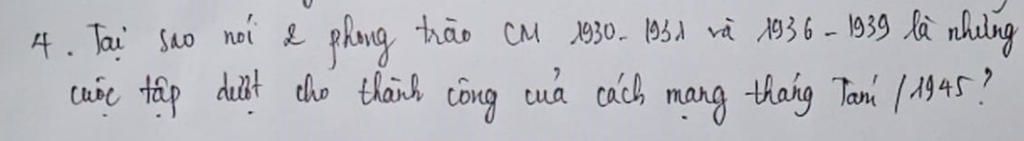 4. Tại sao nói 2 phong trào CM 1930-1931 và 1936-1939 là những
cuộc tập dượt cho thành công của cách mạng tháng Tám /1945?